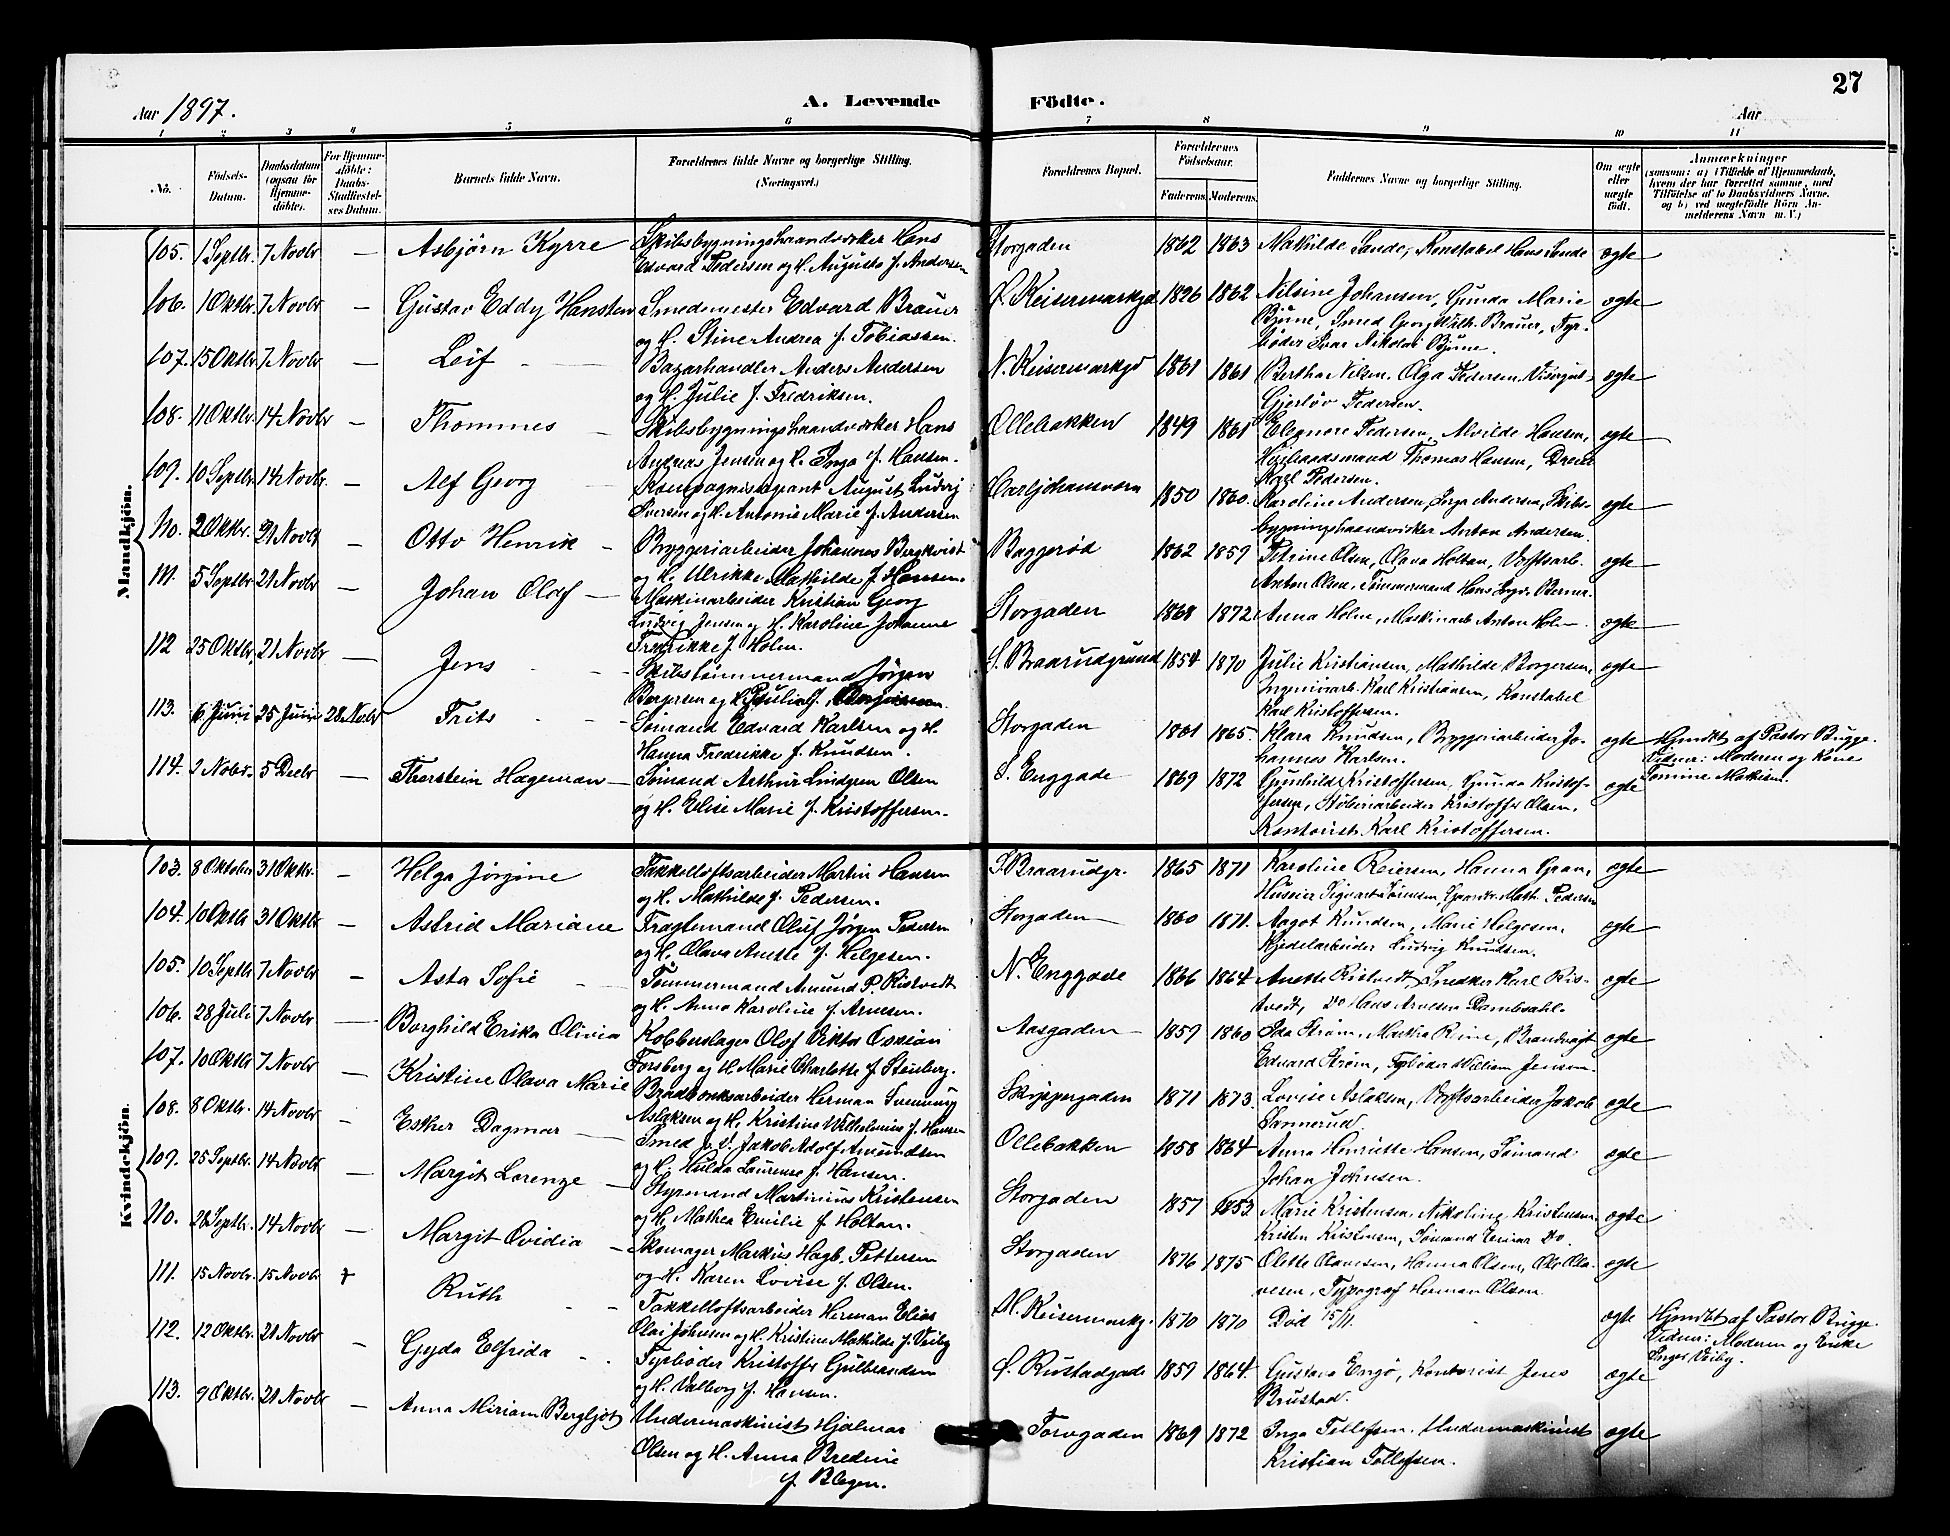 27
Aar 1897.
A. Levende Födte.
Aar
1 2 3 4 5 6 7 8 9 10 11
No.
Födsels-Datum.
Daabsdatum (ogsaa for Hjemme-döbte).
For Hjemme-döbte: Daabs-Stadfæstel-ses Datum.
Barnets fulde Navn.
Forældrenes fulde Navne og borgerlige Stilling. (Næringsvei.)
Forældrenes Bopæl.
Forældrenes Födselsaar.
Faderens. Moderens.
Faddernes Navne og borgerlige Stilling.
Om ægte eller uægte födt.
Anmærkninger (saasom: a) i Tilfælde af Hjemmedaab, hvem der har forrettet samme, med Tilföielse af to Daabsvidners Navne, og b) ved uægtefödte Börn An-melderens Navn m. V.)
Mandkjön.
105. 1 Septbr. 7 Novbr — Asbjørn Kyrre
Skibsbygningshaandværker Hans
Edvard Pedersen og H. Augusta f. Andersen
Storgaden 1862 1863 Mathilde Sande, Konstabel Hans Sande ægte
106. 1 Oktbr. 7 Novbr — Gustav Eddy Hansten
Smedemester Edvard Brauer
og H. Stine Andrea f. Tobiassen.
Ø. Keisermarkgd 1826 1862 Nilsine Johansen, Gunda Marie
Bjune, Smed Georg Wilh. Brauer, Fyr-
bøder Ivar Nikolai Bjune. ægte
107. 15 Oktbr. 7 Novbr — Leif
Bazarhandler Anders Andersen
og H. Julie f. Fredriksen.
N. Keisermarkgd 1861 1861 Bertha Nilsen, Olga Pedersen,
Gjerløv Pedersen. ægte
108. 11 Oktbr. 14 Novbr — Thommes
Skibsbygningshaandværker Hans
Andreas Jensen og H. Inga f. Hansen.
Ollebakken 1849 1861 Eleonore Pedersen, Alvilde Hansen,
Thomas Hansen,
Karl Pedersen. ægte
109. 10 Septbr. 14 Novbr. — Alf Georg
August Ludvig
Iversen og H. Antonie Marie f. Andersen
Carljohansværn 1850 1860. Karoline Andersen, Inga Andersen, Skibs-
bygningshaandværker Anton Andersen. ægte
110. 2 Oktbr. 21 Novbr — Otto Henrik
Bryggeriarbeider Johannes Bergkvist
og H. Ulrikke Mathilde f. Hansen.
Baggerød 1862 1859 Petrine Olsen, Olava Holtan, Verftsarb.
Anton Olsen, Tømmermand Hans ægte
111. 5 Septbr 21 Novbr — Johan Olaf
Maskinarbeider Kristian Georg
Ludvig Jensen og H. Karoline Johanne
Fredrikke f. Holm.
Storgaden 1868 1872 Anna Holm, Maskinarb Anton Holm ægte
112 25 Oktbr. 21 Novbr — Jens
Skibstømmermand Jørgen
Borgersen og H.
S. Braarudgrund 1854 1870 Julie Kristiansen, Mathilde Borgersen,
Ingeniørarb. Karl Kristiansen, Konstabel
Karl Kristoffersen. ægte
113. 6 Juni 25 Juni 28 Novbr Frits
Sømand Edvard Karlsen og H.
Hanna Fredrikke f. Knudsen.
Storgaden 1861 1865. Klara Knudsen, Bryggeriarbeider Jo-
hannes Karlsen. ægte
Hjmdbt af Pastor Bugge.
Vidner: Moderen og Kone
Tomine Mathisen.
114. 2 Novbr. 5 Decbr — Thorstein Hageman
Sømand Arthur Lindgren Olsen
og H. Elise Marie f. Kristoffersen.
S. Enggade 1869 1872 Gunhilda Kristoffersen, Gunda Kristof-
fersen, Støberiarbeider Kristoffer Olsen,
Kontorist Karl Kristoffersen. ægte
Kvindekjön.
103. 8 Oktober 31 Oktbr. — Helga Jørgine
Takkelloftsarbeider Martin Hansen
og H. Mathilde f. Pedersen.
S. Braarudgr. 1865 1871 Karoline Reiersen, Hanna Gran,
Sigvart Simensen, Math. Pedersen ægte
104. 10 Oktbr 31 Oktbr — Astrid Mariane
Fragtemand Oluf Jørgen Pedersen
og H. Olava Anette f. Helgesen.
Storgaden 1860 1871. Aagot Knudsen, Marie Helgesen,
Kjedelarbeider Ludvig Knudsen. ægte
105. 10 Septbr 7 Novbr — Asta Sofie
Tømmermand Amund P. Ristvedt
og H. Anna Karoline f. Arnesen.
N. Enggade 1866 1864 Anette Ristvedt, Snedker Karl Rist-
vedt, Do Hans Arnesen ægte
106. 28 Juli 7 Novbr — Borghild Erika Olivia
Kobberslager Olof Viktor Ossian
Forsberg og H. Marie Charlotte f. Stenberg.
Aasgaden 1859 1860 Ida Strøm, Brandvagt
Edvard Strøm, Fyrbøder William Jensen. ægte
107. 10 Oktbr 7 Novbr — Kristine Olava Marie
Braadbænksarbeider Herman
Aslaksen og H. Kristine Wilhelmine f. Hansen
Skippergaden 1871 1873. Lovise Aslaksen, Verftsarbeider Jakob
Sannerud. ægte
108. 8 Oktbr. 14 Novbr — Esther Dagmar
Smed v. V. Jakob Adolf Amundsen
og H. Hulda Laurense f. Hansen.
Ollebakken 1858 1864 Anna Henriette Hansen, Sømand
Johan Johnsen. ægte
109. 25 Septbr 14 Novbr — Margit Lorenze
Styrmand Martinius Kristensen
og H. Mathea Emilie f. Holtan.
Storgaden 1857 1853 Marie Kristensen, Nikoline Kristensen,
Kristen Kristensen, Sømand Do. ægte
110. 26 Septbr. 14 Novbr — Margit Ovidia
Skomager Markus Hagb. Pettersen
og H. Karen Lovise f. Olsen.
Storgaden 1876 1875 Olette Olavesen, Hanna Olsen, Ole Ola-
vesen, Typograf Herman Olsen. ægte
111. 15 Novbr. 15 Novbr. † Ruth
Takkelloftsarbeider Herman Elias
Olai Johnsen og H. Kristine Mathilde f. Veiby
M. Keisermarkg. 1870 1870 Død 15/11. ægte
Hjmdbt af Pastor Bugge.
Vidner: Moderen og Enke
Inger Veiby.
112. 12 Oktbr. 21 Novbr — Gyda Elfrida
Fyrbøder Kristoffer Gulbrandsen
og H. Valborg f. Hansen.
Ø. Rustadgade 1857 1864. Gustava Engø, Kontorist Jens
Brustad. ægte
113. 9 Oktbr. 21 Novbr — Anna Miriam Bergljot
Undermaskinist Hjalmar
Olsen og H. Anna Bredine
f. Blegen.
Torvgaden 1869 1872 Inga Tollefsen, Undermaskinist
Kristian Tollefsen. ægte